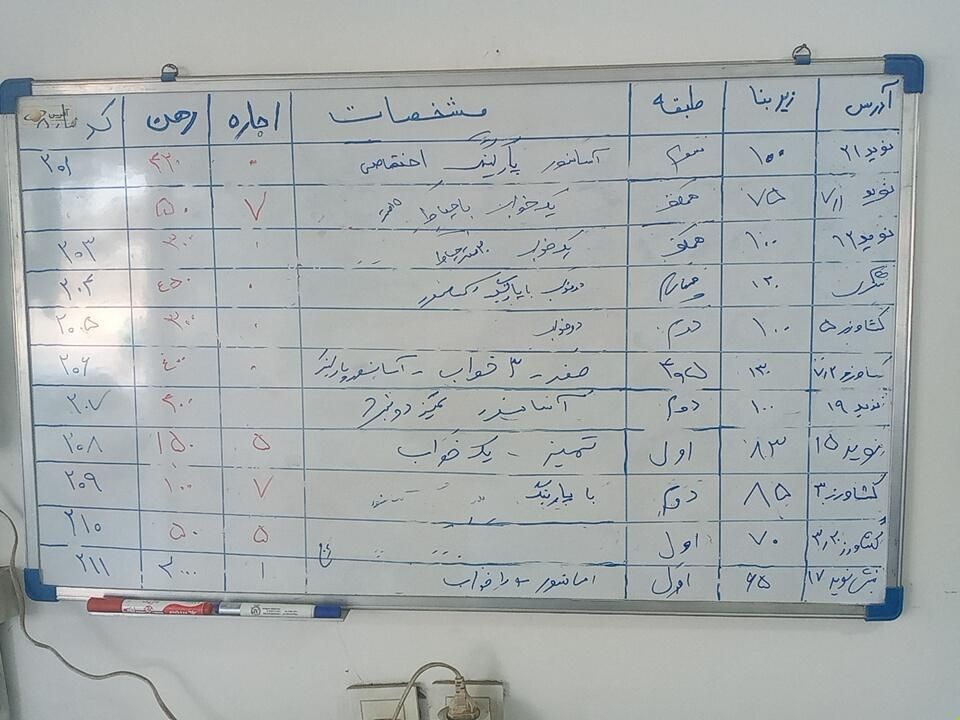 آدرس زیربنا طبقه مشخصات اجاره رهن کد
نوید ۲۱ ۱۰۰ سوم آسانسور پارکینگ اختصاصی ۰ ۴۲۰ ۲۰۱
نوید ۷/۱ ۷۵ همکف یک خواب با حیاط ۷ ۵۰
نوید ۱۲ ۱۰۰ همکف یک خواب حیاط ۰ ۳۰۰ ۲۰۳
۱۲۰ دو خواب با پارکینگ ۰ ۴۵۰ ۲۰۴
کشاورز ۵ ۱۰۰ دوم دو خواب ۰ ۳۰۰ ۲۰۰۵
کشاورز ۷/۲ ۱۳۰ صفر - ۳ خواب - آسانسور و پارکینگ ۰ ۲۰۶
نوید ۱۹ ۱۰۰ دوم آسانسور تمیز ۴۰۰ ۲۰۷
نوید ۱۵ ۸۳ اول تمیز - یک خواب ۵ ۱۵۰ ۲۰۸
کشاورز ۳ ۸۵ دوم با پارکینگ ۷ ۱۰۰ ۲۰۹
کشاورز ۳/۲۰ ۷۰ اول ۵ ۵۰ ۲۱۰
نبش نوید ۱۷ ۶۵ اول آسانسور + خواب ۱ ۲۰۰۰ ۲۱۱